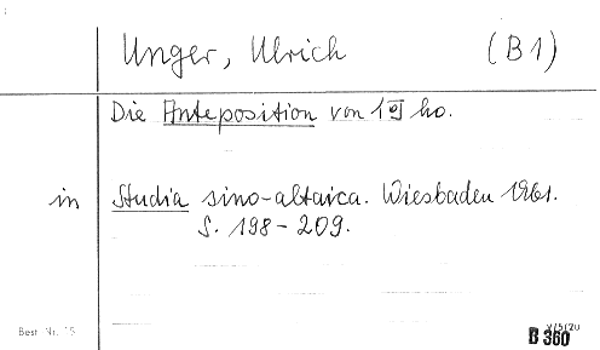 Unger, Ulrich (B1)
Die Anteposition von 何 ho.
in Studia sino-altaica. Wiesbaden 1961.
S. 198-209.
Best. Nr. 15
B 360